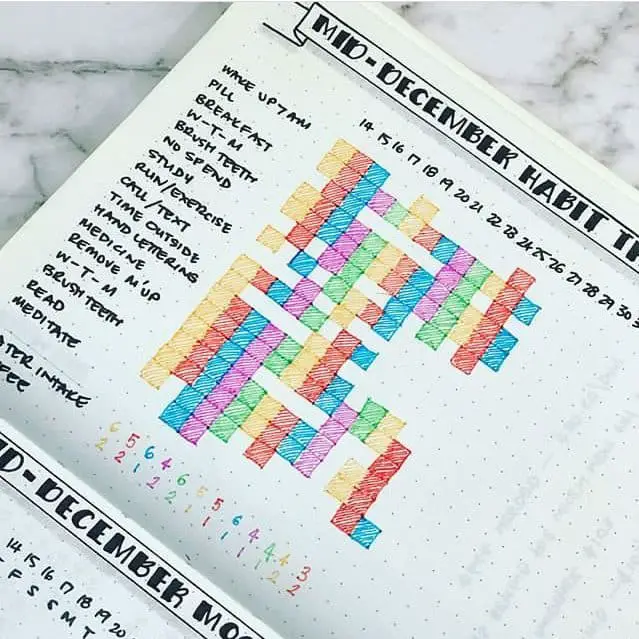 MID-DECEMBER HABIT
14 15 16 17 18 19 20 21 22 23 24 25 26 27 28 29 30
WAKE UP 7 AM
PILL
BREAKFAST
W-T-M
BRUSH TEETH
NO SPEND
STUDY
RUN/EXERCISE
CALL/TEXT
TIME OUTSIDE
HAND LETTERING
MEDICINE
REMOVE M'UP
W-T-M
BRUSH TEETH
READ
MEDITATE
INTAKE
6 5 6 4 6 6 5 6 4 4 4 3
2 2 1 2 2 1 1 1 1 1 2 2
MID-DECEMBER
14 15 16 17 18 19 20
F S S M T